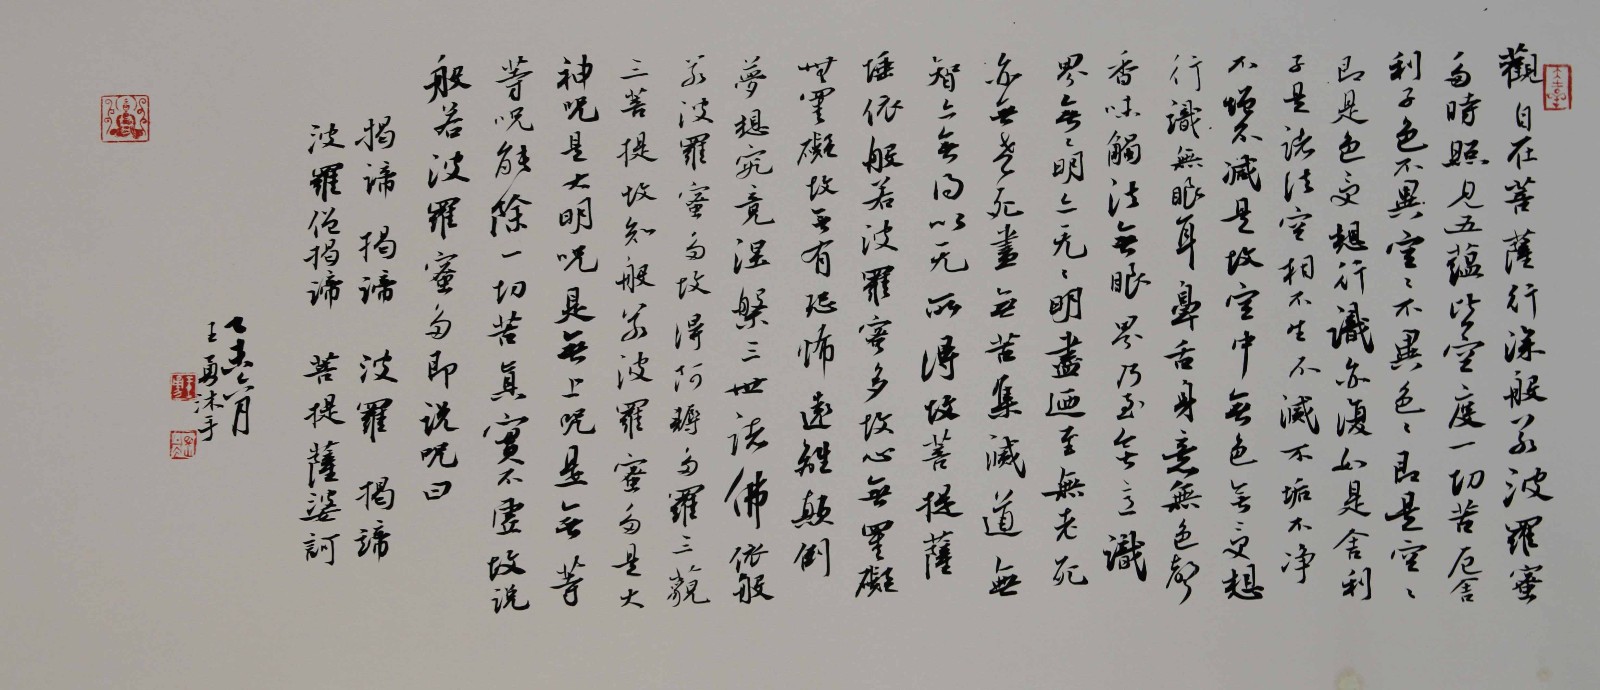 觀自在菩薩行深般若波羅蜜
多時照見五蘊皆空度一切苦厄舍
利子色不異空〻不異色〻即是空〻
即是色受想行識亦復如是舍利
子是諸法空相不生不滅不垢不净
不增不減是故空中無色无受想
行識無眼耳鼻舌身意無色聲
香味觸法無眼界乃至无意識
界無〻明亦无〻明盡迺至無老死
亦無老死盡無苦集滅道無
智亦無得以无所得故菩提薩
埵依般若波羅蜜多故心無罣礙
無罣礙故無有恐怖遠離顛倒
夢想究竟涅槃三世諸佛依般
若波羅蜜多故得阿耨多羅三藐
三菩提故知般若波羅蜜多是大
神咒是大明咒是無上咒是無等
等咒能除一切苦真實不虛故说
般若波羅蜜多即说咒曰
揭諦 揭諦 波羅 揭諦
波羅僧揭諦 菩提薩婆訶
六月
王勇沐手